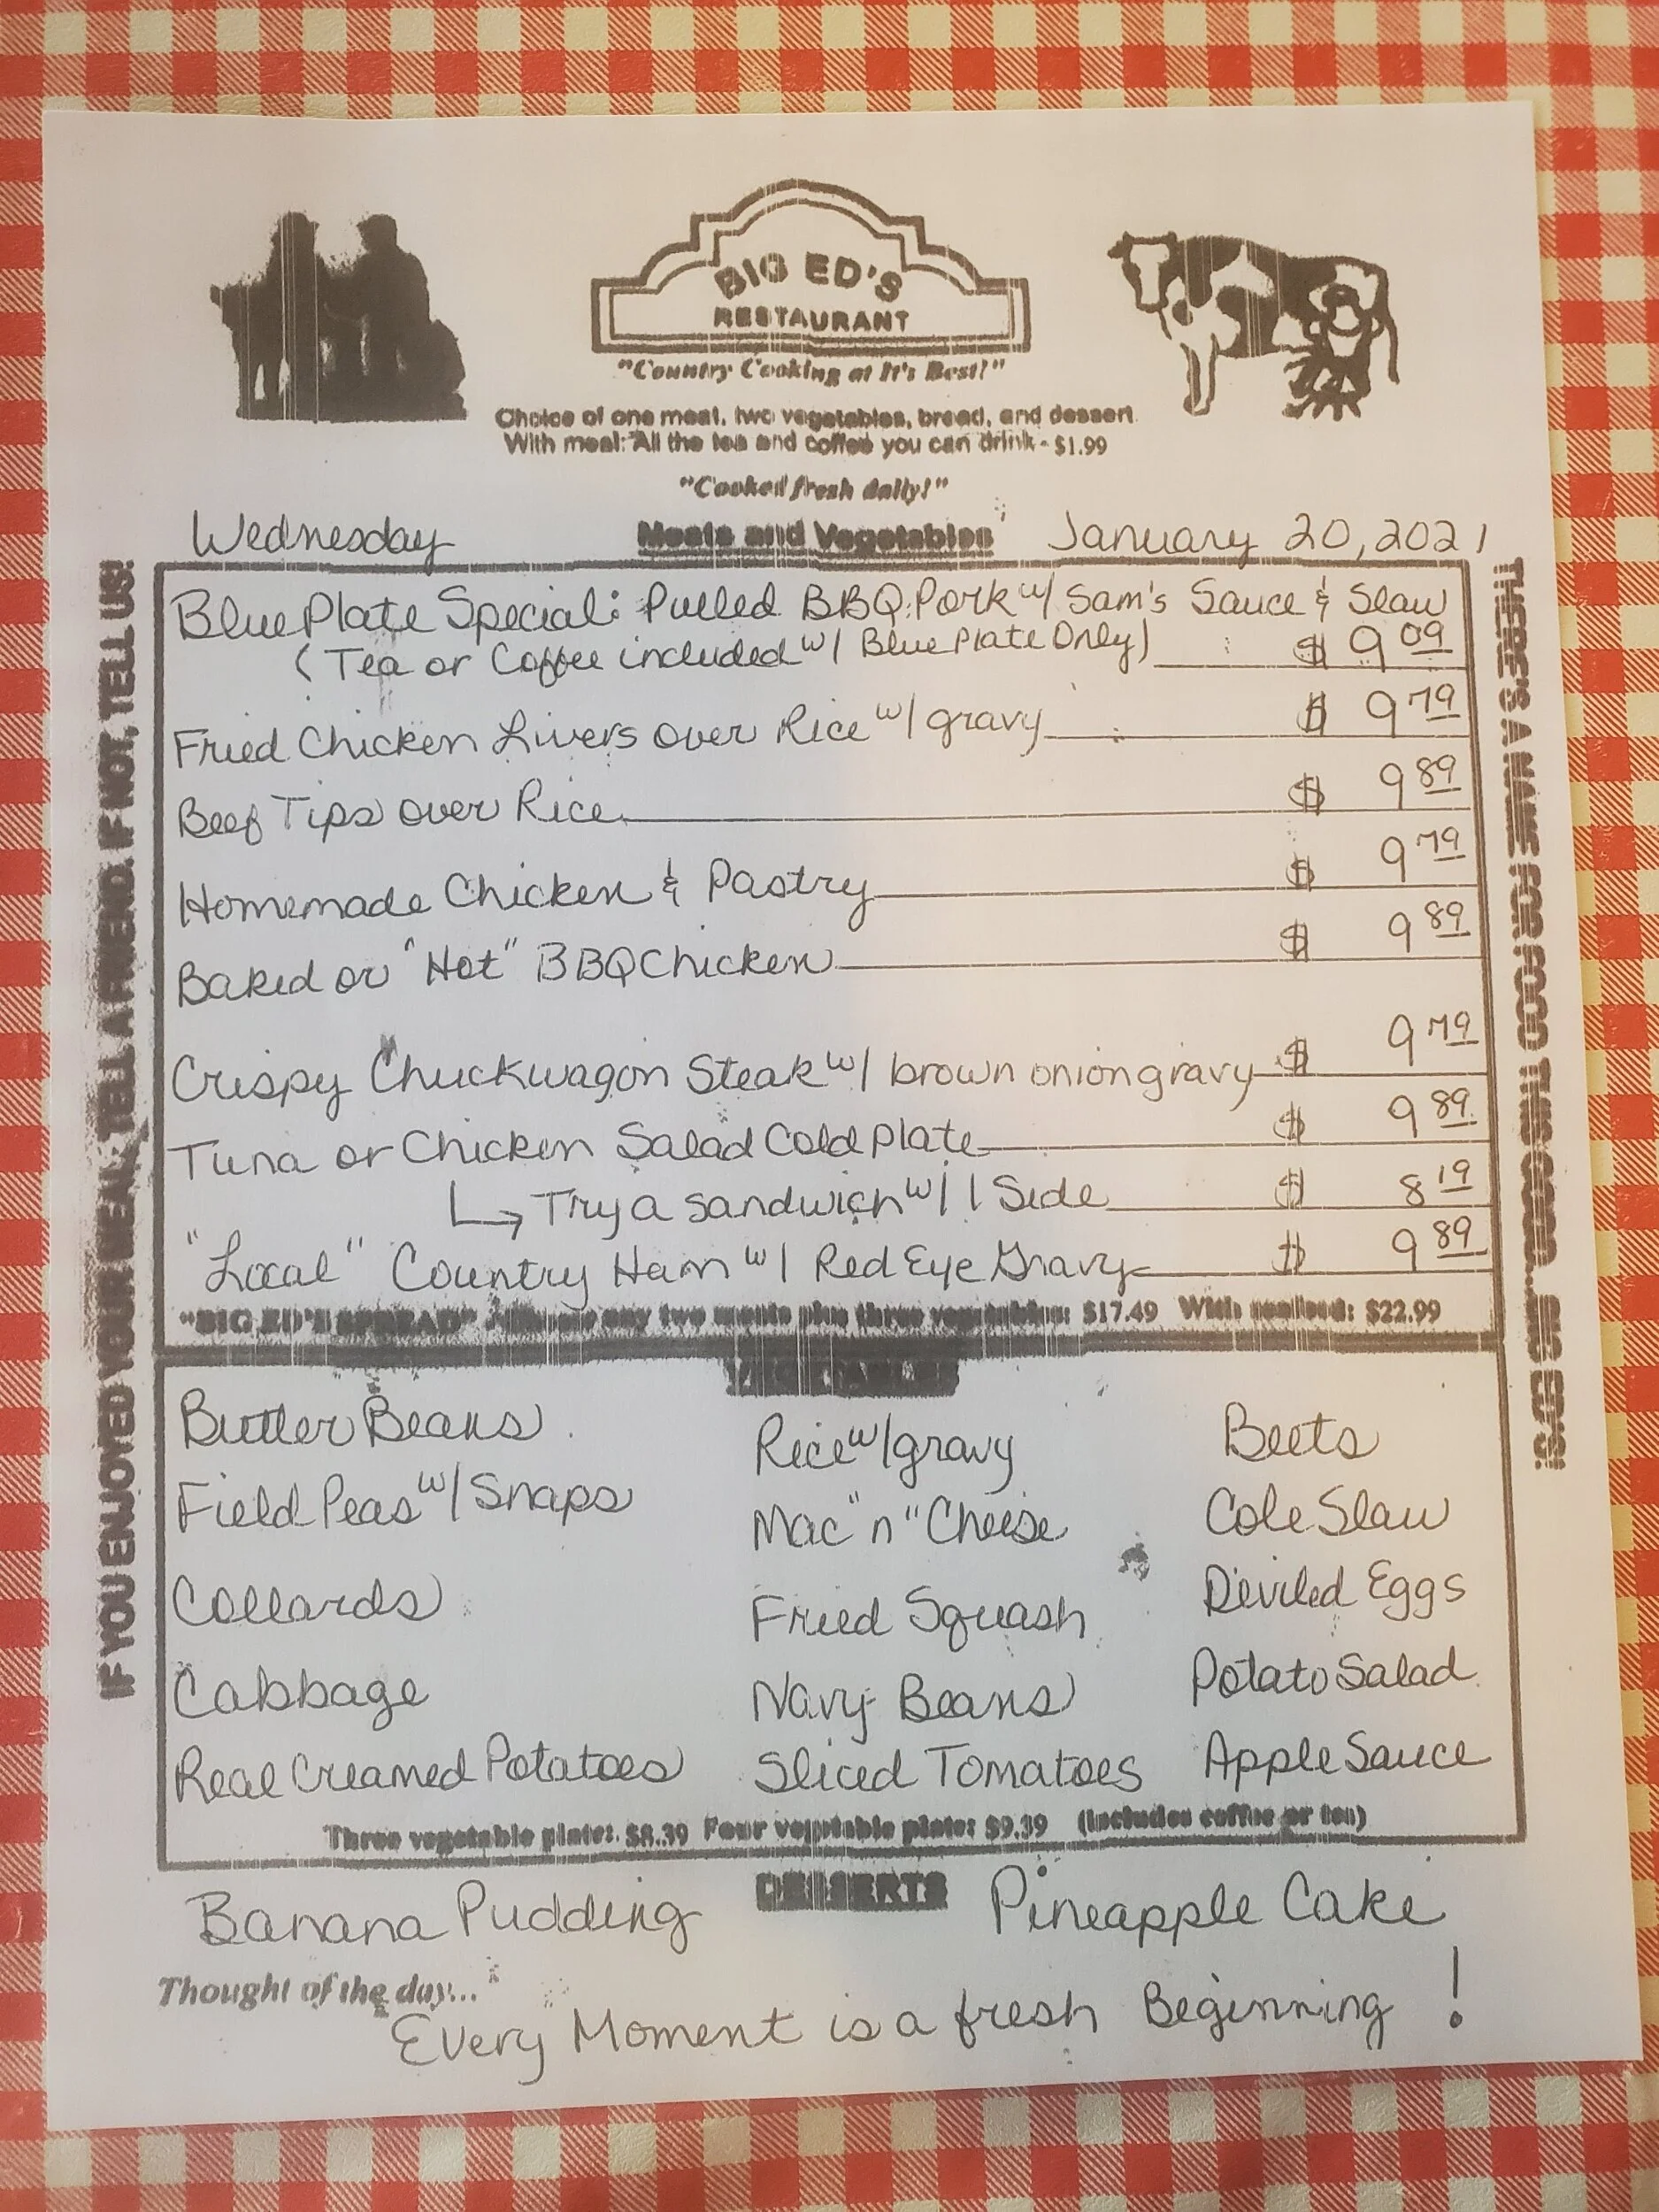 BIG ED'S
RESTAURANT
"Country Cooking at It's Best!"
Choice of one meat, two vegetables, bread, and dessert
With meal: All the tea and coffee you can drink - $1.99
"Cooked fresh daily!"
Wednesday Meats and Vegetables January 20, 2021
IF YOU ENJOYED YOUR MEAL, TELL A FRIEND. IF NOT, TELL US!
Blue Plate Special: Pulled BBQ Pork w/ Sam's Sauce & Slaw
(Tea or Coffee included w/ Blue Plate Only) $ 9 09
Fried Chicken Livers over Rice w/ gravy $ 9 79
Beef Tips over Rice $ 9 89
Homemade Chicken & Pastry $ 9 79
Baked or "Hot" BBQ Chicken $ 9 89
Crispy Chuckwagon Steak w/ brown onion gravy $ 9 79
Tuna or Chicken Salad Cold Plate $ 9 89
↳ Try a sandwich w/ 1 Side $ 8 19
"Local" Country Ham w/ Red Eye Gravy $ 9 89
"BIG ED'S SPREAD" any two meats plus three vegetables: $17.49 With seafood: $22.99
THERE'S A NAME FOR FOOD THIS GOOD... BIG ED'S!
VEGETABLES
Butter Beans Rice w/ gravy Beets
Field Peas w/ Snaps Mac "n" Cheese Cole Slaw
Collards Fried Squash Deviled Eggs
Cabbage Navy Beans Potato Salad
Real Creamed Potatoes Sliced Tomatoes Apple Sauce
Three vegetable plate: $8.39 Four vegetable plate: $9.39 (Includes coffee or tea)
DESSERTS
Banana Pudding Pineapple Cake
Thought of the day...
Every Moment is a fresh Beginning !